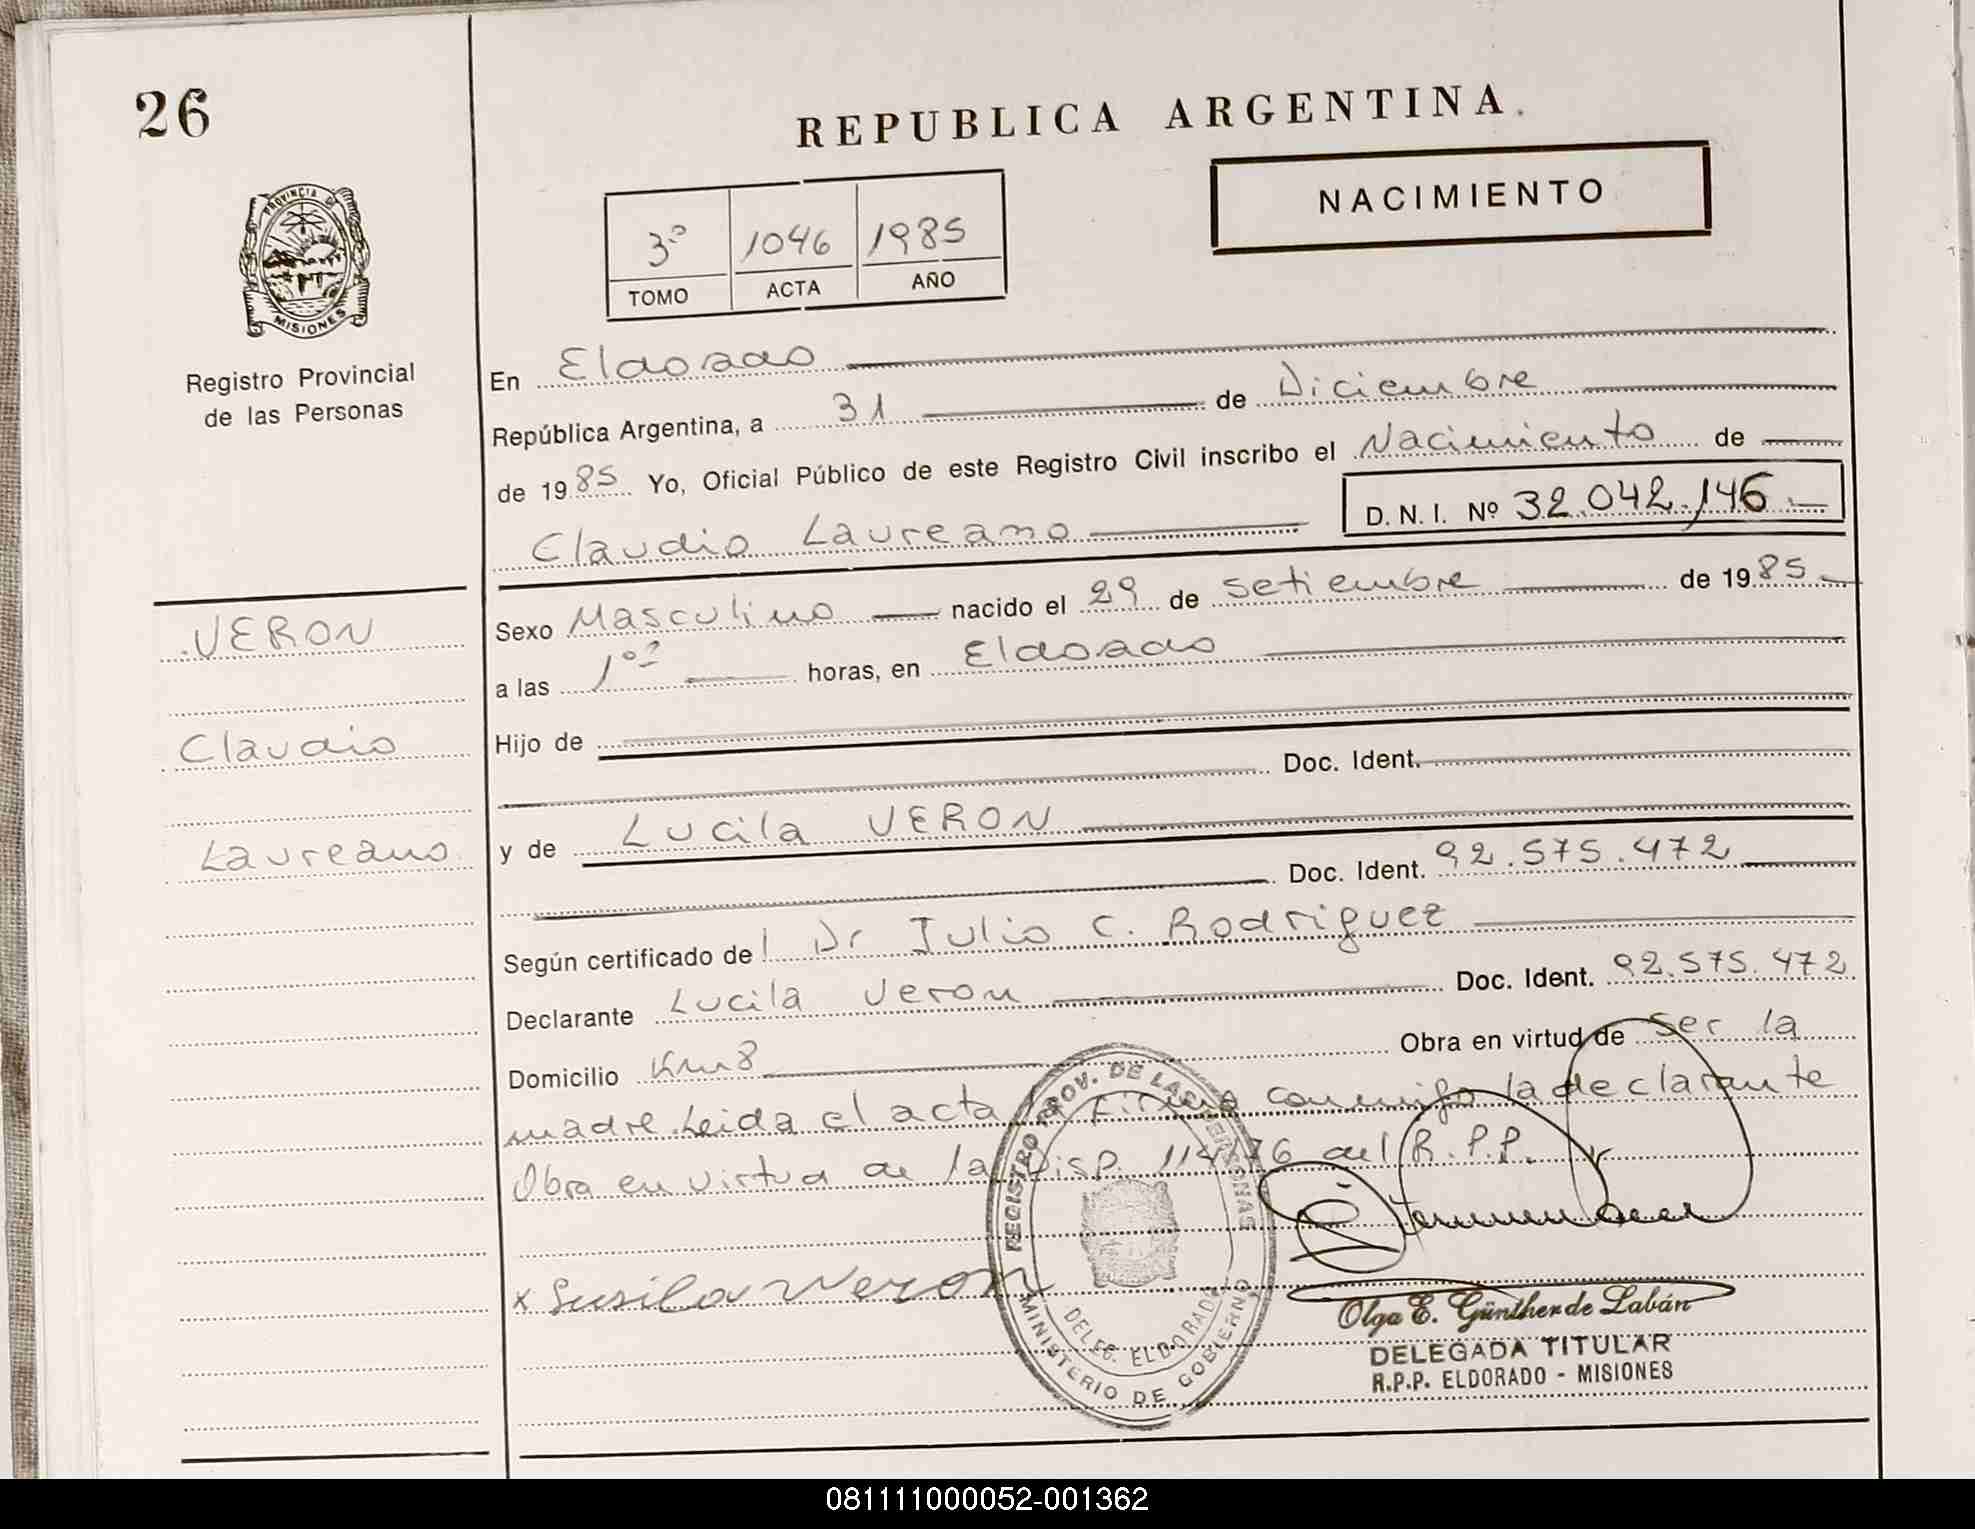 26
REPUBLICA ARGENTINA.
PROVINCIA DE
MISIONES
Registro Provincial
de las Personas
3º 1046 1985
TOMO ACTA AÑO
NACIMIENTO
En Eldorado
República Argentina, a 31 de Diciembre
de 1985 Yo, Oficial Público de este Registro Civil inscribo el Nacimiento de
Claudio Laureano D. N. I. Nº 32.042.146.-
VERON
Claudio
Laureano
Sexo Masculino nacido el 29 de Setiembre de 1985
a las 1º² horas, en Eldorado
Hijo de
Doc. Ident.
y de Lucila VERON
Doc. Ident. 92.575.472
Según certificado del Dr Julio C. Rodriguez
Declarante Lucila Veron Doc. Ident. 92.575.472
Domicilio Km8 Obra en virtud de ser la
madre. Leida el acta la firma conmigo la declarante
Obra en virtud de la Disp. 114/76 del R.P.P.
x Lusila Veron
REGISTRO PROV. DE LAS PERSONAS
DELEG. ELDORADO
MINISTERIO DE GOBIERNO
Olga E. Günther de Labán
DELEGADA TITULAR
R.P.P. ELDORADO - MISIONES
081111000052-001362